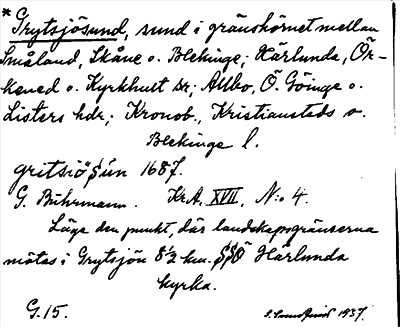 * Grytsjösund, sund i gränshörnet mellan
Småland, Skåne o. Blekinge; Härlunda, Ör-
kened o. Kyrkhult snr; Allbo, Ö. Göinge o.
Listers hdr; Kronob., Kristianstads o.
Blekinge l.
gritsiö sún 1687.
G. Buhrmann. KrA, XVII, N:o 4.
Läge den punkt, där landskapsgränserna
mötas i Grytsjön 8 1/2 km. SSÖ Härlunda
kyrka.
G. 15. 1937.